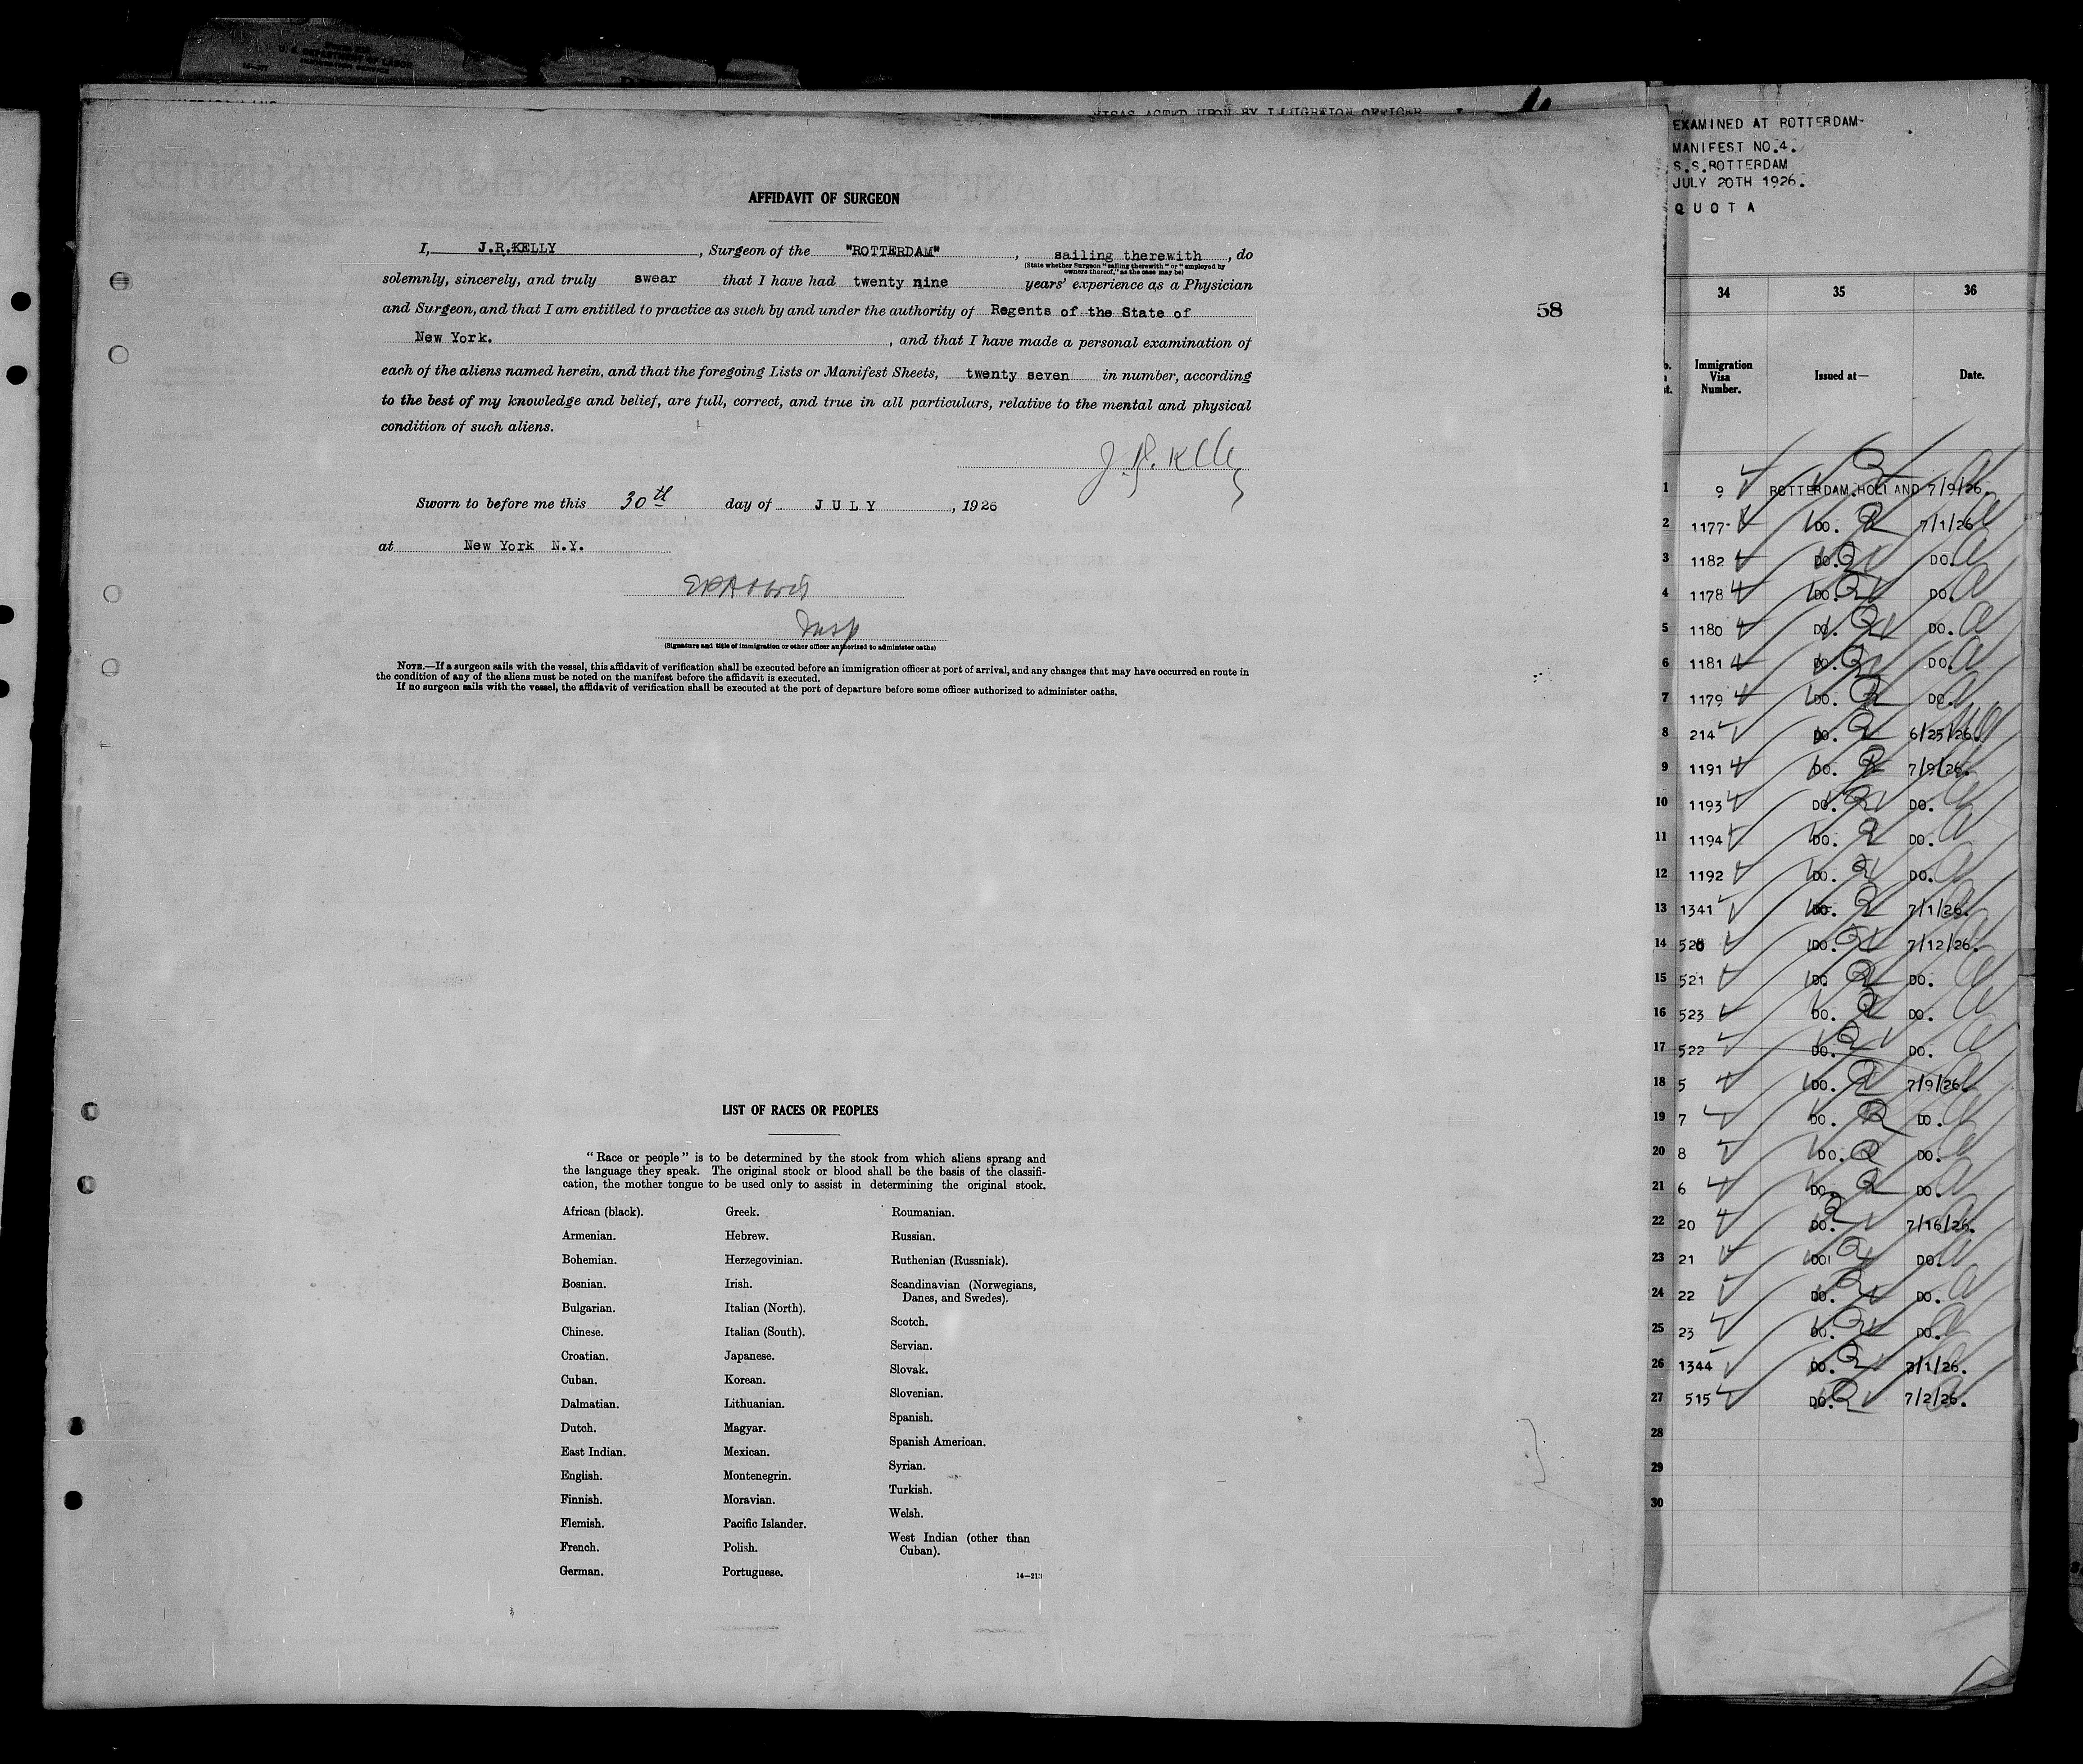 U. S. DEPARTMENT OF LABOR
IMMIGRATION SERVICE
VISAS ACTED UPON BY IMMIGRATION OFFICER
AFFIDAVIT OF SURGEON
I, J.R.KELLY, Surgeon of the "ROTTERDAM", sailing therewith, do
(State whether Surgeon "sailing therewith" or "employed by
owners thereof," as the case may be)
solemnly, sincerely, and truly swear that I have had twenty nine years' experience as a Physician
and Surgeon, and that I am entitled to practice as such by and under the authority of Regents of the State of
New York., and that I have made a personal examination of
each of the aliens named herein, and that the foregoing Lists or Manifest Sheets, twenty seven in number, according
to the best of my knowledge and belief, are full, correct, and true in all particulars, relative to the mental and physical
condition of such aliens.
J. R. Kelly
Sworn to before me this 30th day of JULY, 1926
at New York N.Y.
Insp
(Signature and title of immigration or other officer authorized to administer oaths)
NOTE.—If a surgeon sails with the vessel, this affidavit of verification shall be executed before an immigration officer at port of arrival, and any changes that may have occurred en route in
the condition of any of the aliens must be noted on the manifest before the affidavit is executed.
If no surgeon sails with the vessel, the affidavit of verification shall be executed at the port of departure before some officer authorized to administer oaths.
58
LIST OF RACES OR PEOPLES
"Race or people" is to be determined by the stock from which aliens sprang and
the language they speak. The original stock or blood shall be the basis of the classifi-
cation, the mother tongue to be used only to assist in determining the original stock.
African (black).
Armenian.
Bohemian.
Bosnian.
Bulgarian.
Chinese.
Croatian.
Cuban.
Dalmatian.
Dutch.
East Indian.
English.
Finnish.
Flemish.
French.
German.
Greek.
Hebrew.
Herzegovinian.
Irish.
Italian (North).
Italian (South).
Japanese.
Korean.
Lithuanian.
Magyar.
Mexican.
Montenegrin.
Moravian.
Pacific Islander.
Polish.
Portuguese.
Roumanian.
Russian.
Ruthenian (Russniak).
Scandinavian (Norwegians,
Danes, and Swedes).
Scotch.
Servian.
Slovak.
Slovenian.
Spanish.
Spanish American.
Syrian.
Turkish.
Welsh.
West Indian (other than
Cuban).
14—213
EXAMINED AT ROTTERDAM-
MANIFEST NO.4.
S.S.ROTTERDAM
JULY 20TH 1926.
QUOTA
34 35 36
Immigration
Visa
Number.
Issued at—
Date.
1 9 ROTTERDAM.HOLLAND 7/9/26.
2 1177- DO. 7/1/26
3 1182 DO. DO.
4 1178 DO. DO.
5 1180 DO. DO.
6 1181 DO. DO.
7 1179 DO. DO.
8 214 DO. 6/25/26.
9 1191 DO. 7/9/26.
10 1193 DO. DO.
11 1194 DO. DO.
12 1192 DO. DO.
13 1341 DO. 7/1/26.
14 520 DO. 7/12/26.
15 521 DO. DO.
16 523 DO. DO.
17 522 DO. DO.
18 5 DO. 7/9/26.
19 7 DO. DO.
20 8 DO. DO.
21 6 DO. DO.
22 20 DO. 7/16/26.
23 21 DO. DO.
24 22 DO. DO.
25 23 DO. DO.
26 1344 DO. /1/26.
27 515 DO. 7/2/26.
28
29
30